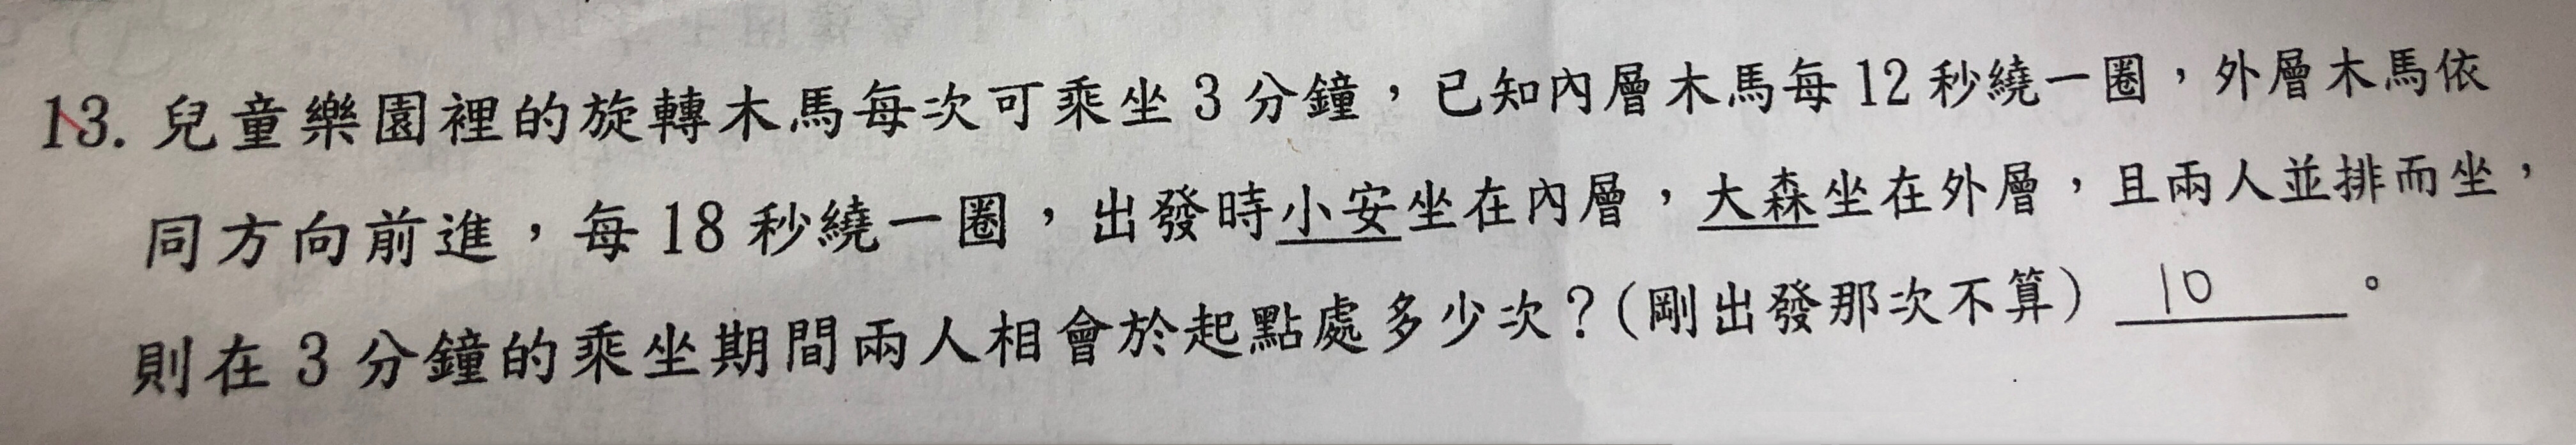 13. 兒童樂園裡的旋轉木馬每次可乘坐3分鐘，已知內層木馬每12秒繞一圈，外層木馬依
同方向前進，每18秒繞一圈，出發時小安坐在內層，大森坐在外層，且兩人並排而坐，
則在3分鐘的乘坐期間兩人相會於起點處多少次？(剛出發那次不算) 10 。